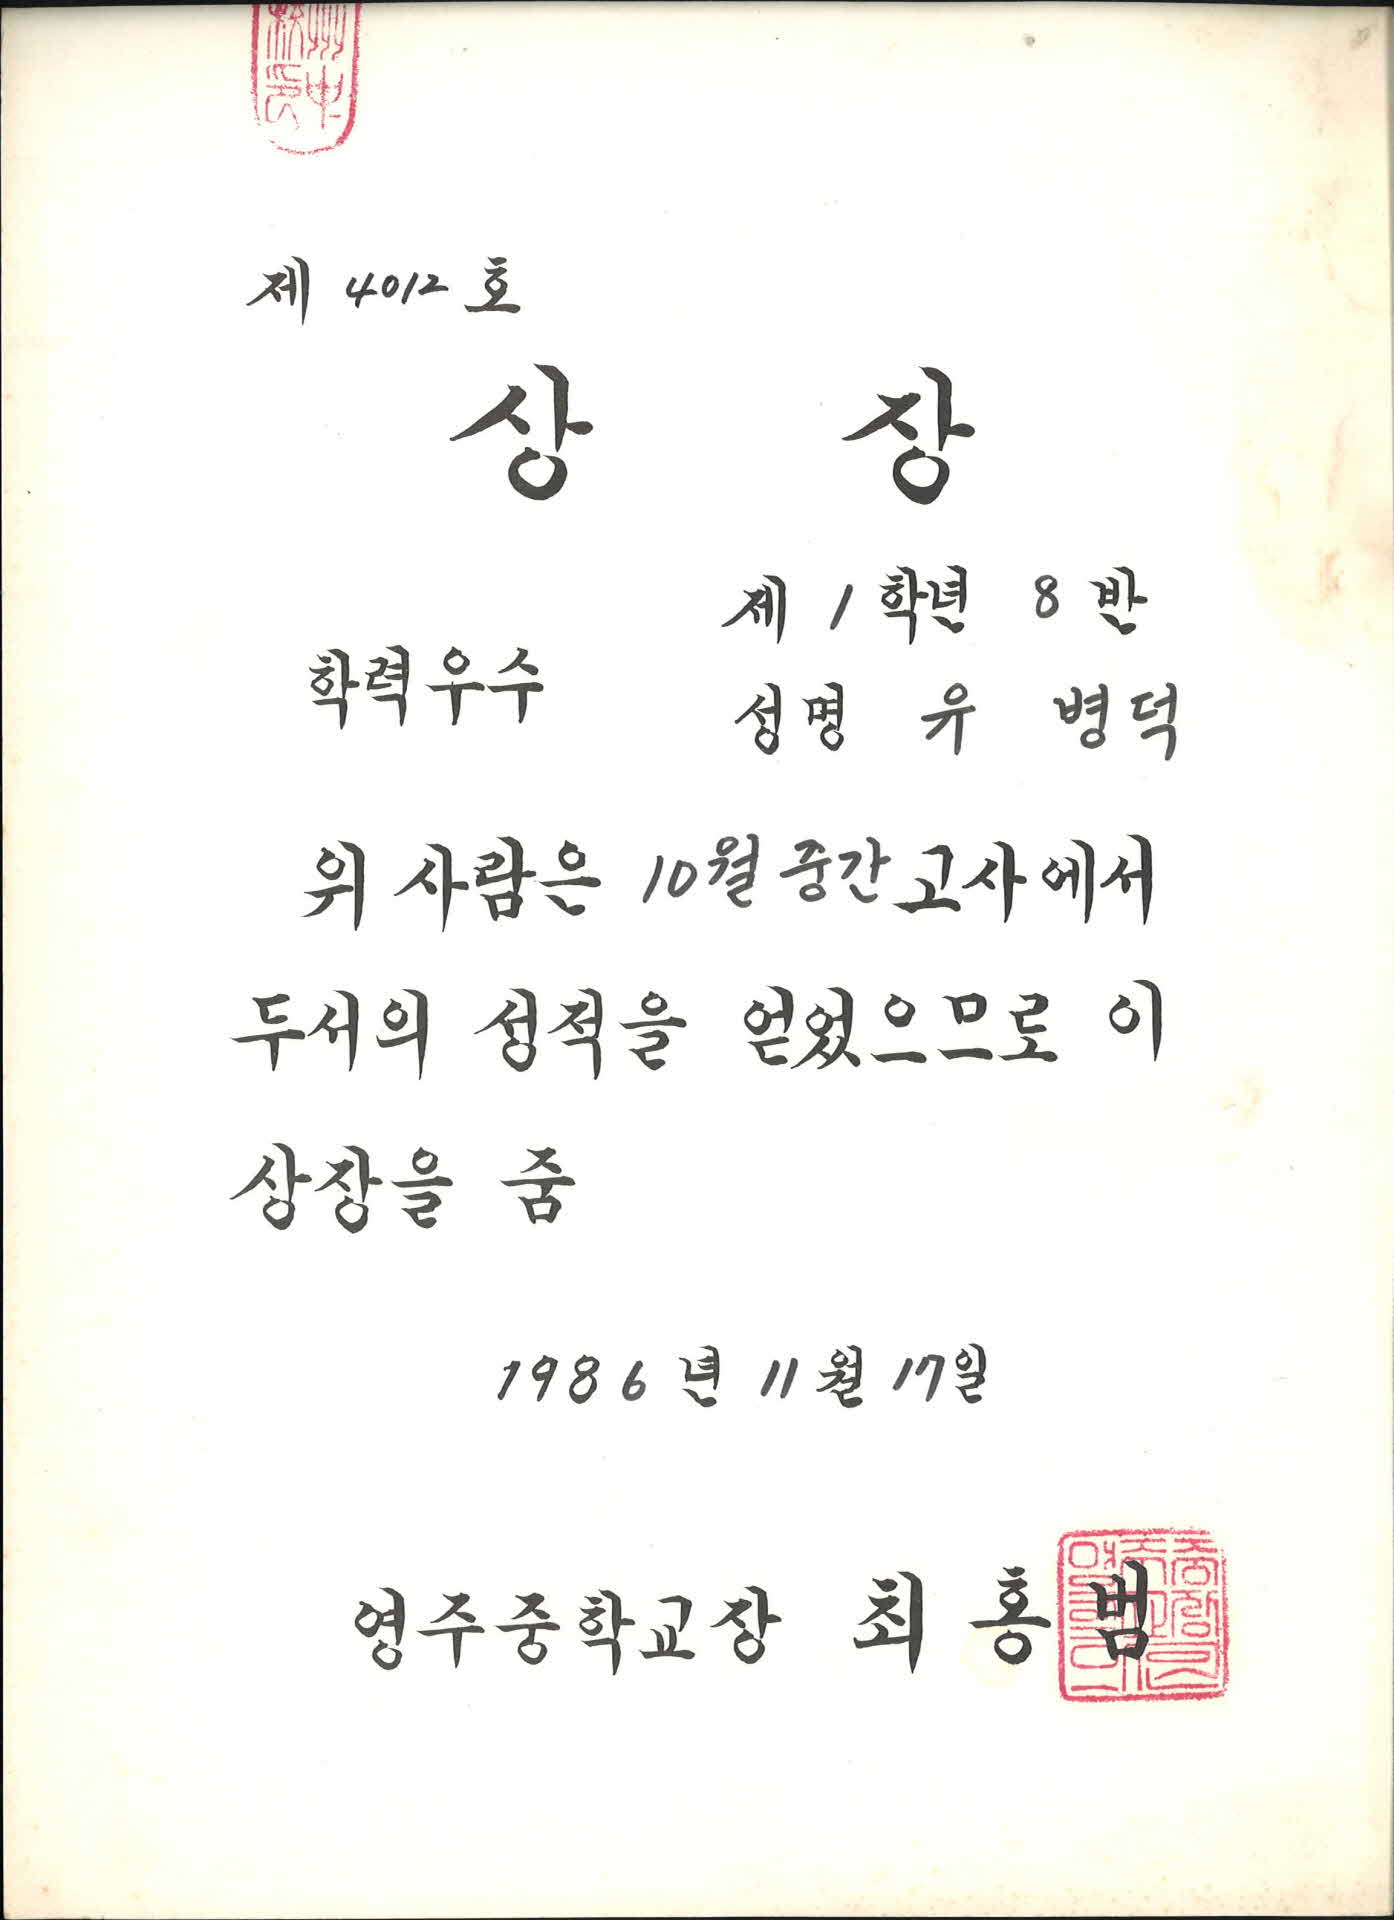 제 4012 호
상 장
제 1 학년 8 반
학력우수
성명 유 병덕
위 사람은 10월 중간고사에서
두서의 성적을 얻었으므로 이
상장을 줌
1986년 11월 17일
영주중학교장 최홍범